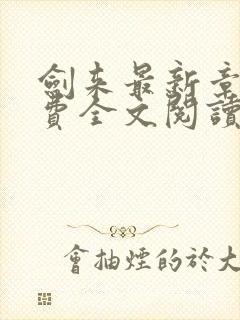 劍来最新章
費全文閱讀
會抽煙的於大